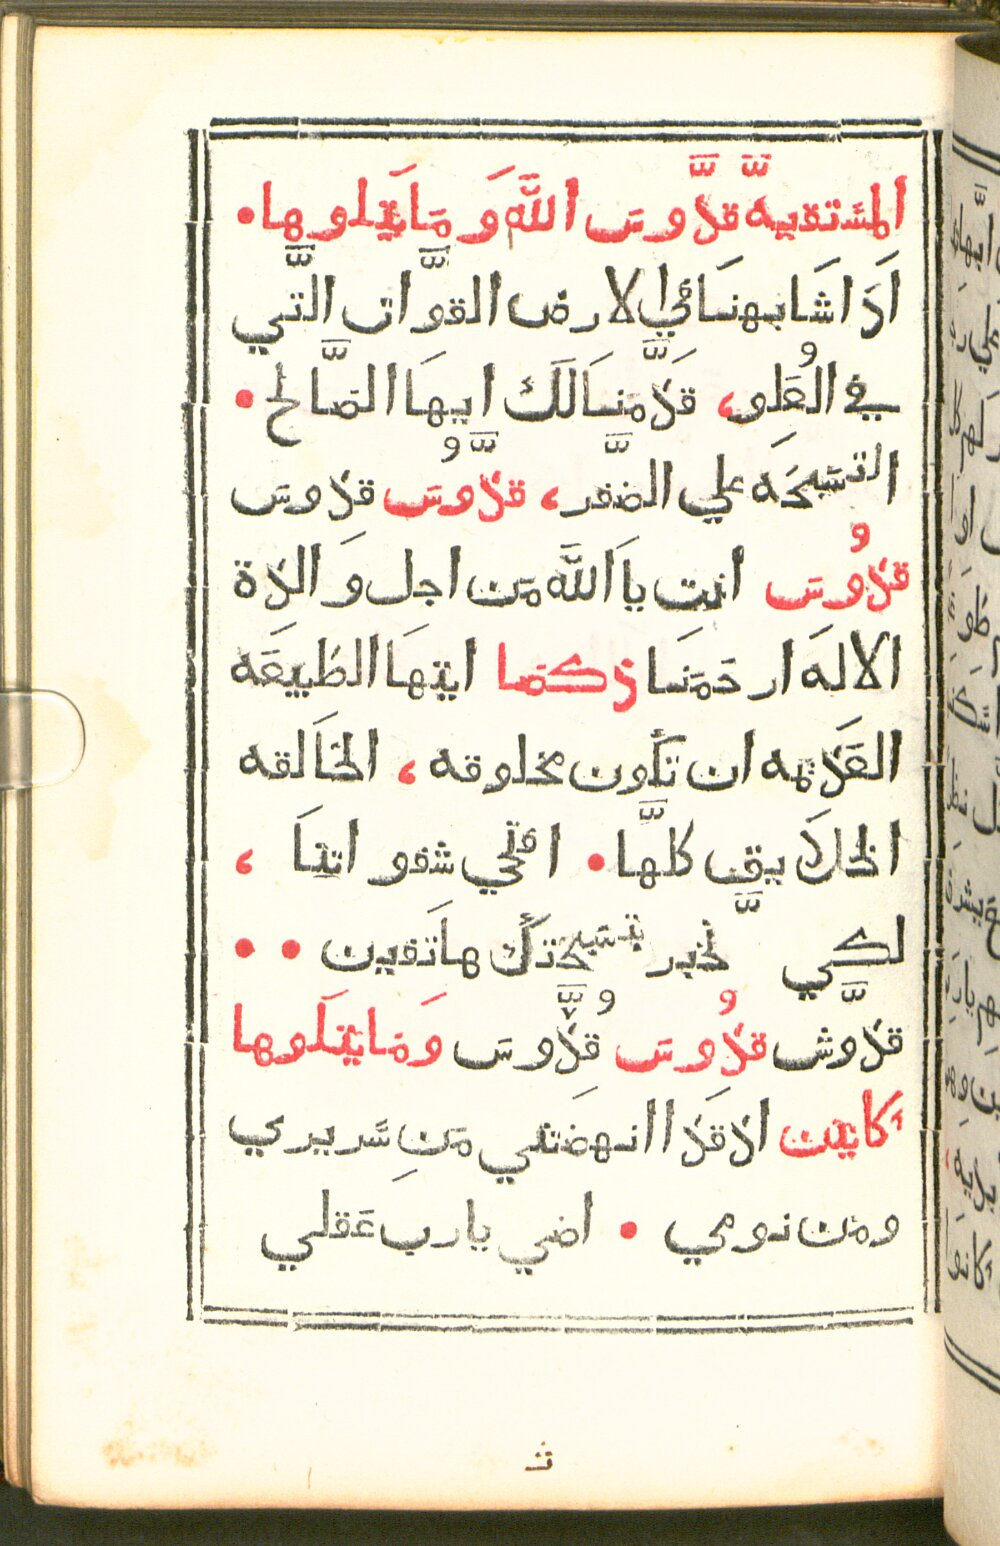 المستقيه قدوس الله وما يتلوها •
اذ اشابهنا في الارض القوات التي
في العلو، قدمنا لك ايها الصالح •
التسبحه علي الضفر، قدوس قدوس
قدوس انت يا الله من اجل والدة
الاله ارحمنا زكصا ايتها الطبيعه
القديمه ان تكون مخلوقه ، الخالقه
الخلايق كلها • افتحي شفواتنا ،
لكي نخبر بتسبحتك هاتفين • •
قدوش قدوس قدوس وما يتلوها
كانين اذ قد انهضتني من سريري
ومن نومي • اضي يارب عقلي
ث